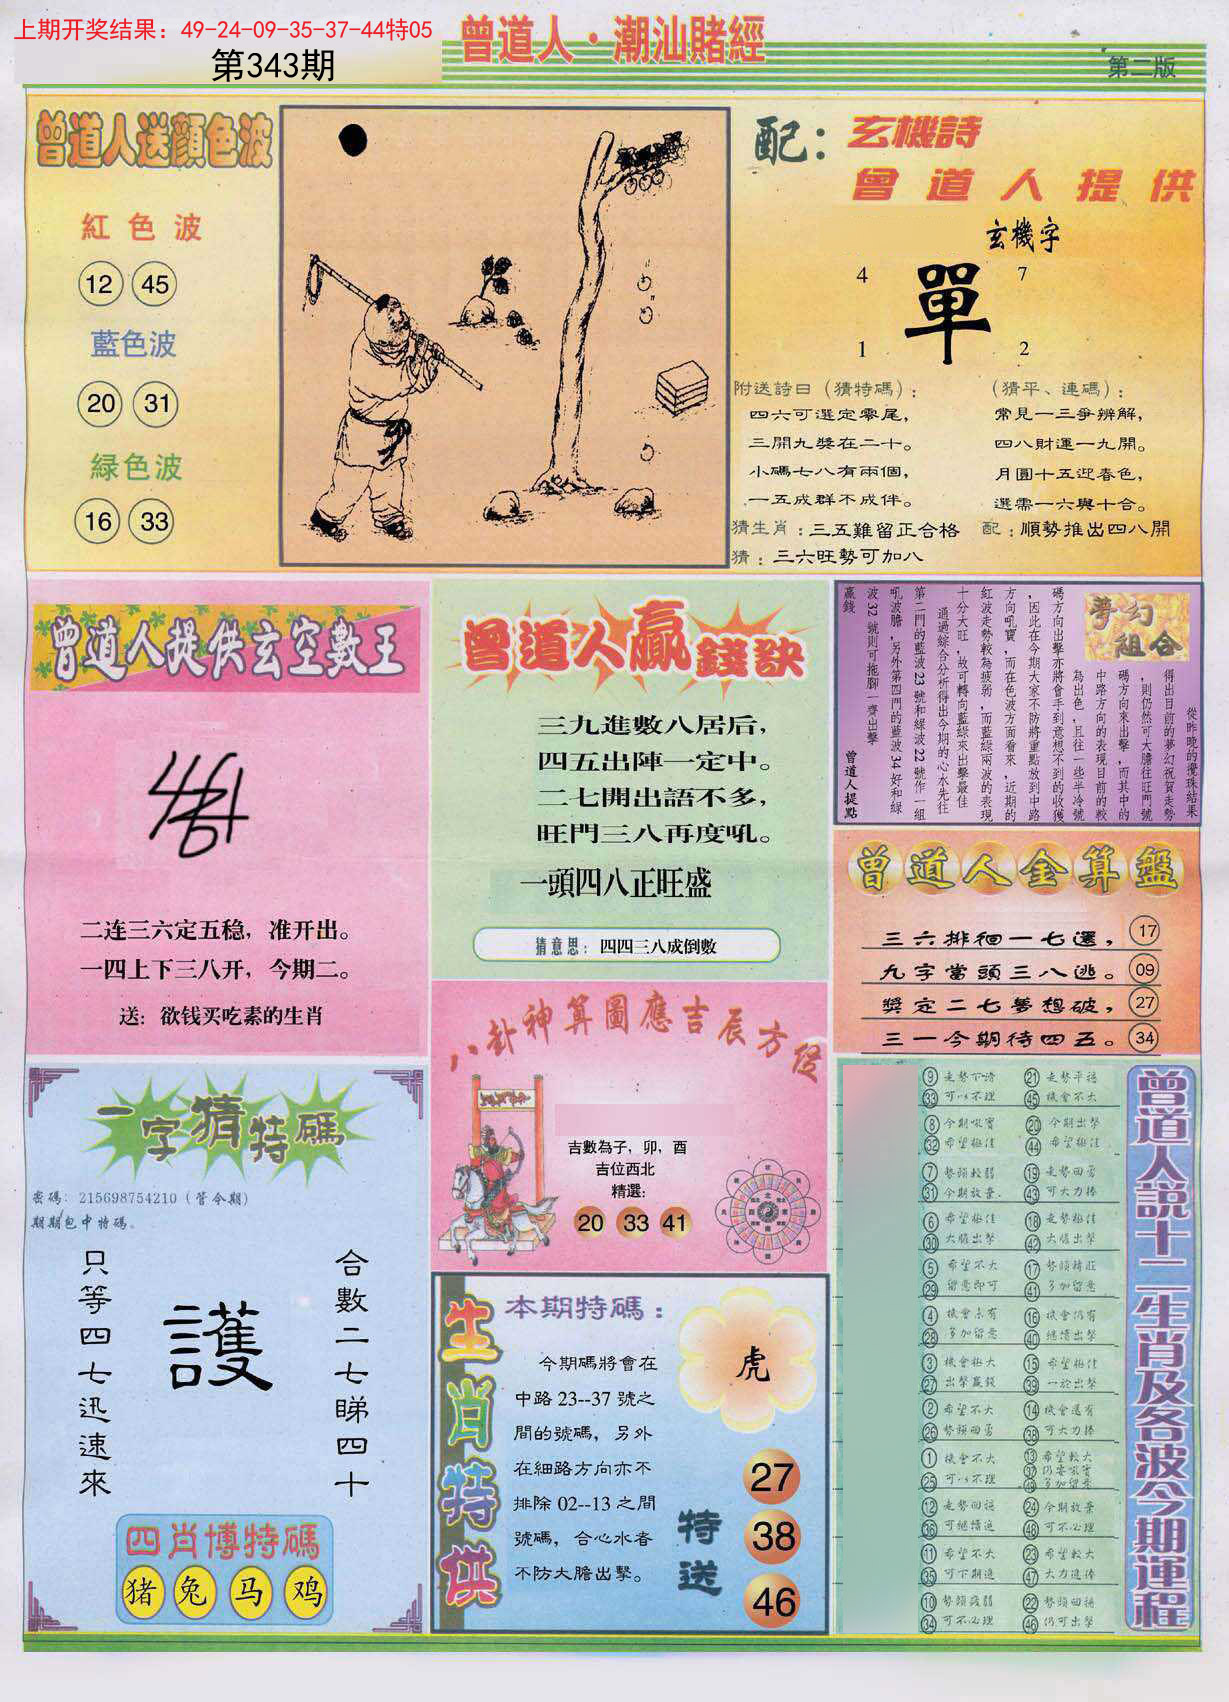 上期开奖结果：49-24-09-35-37-44特05
第343期
曾道人·潮汕賭經
第二版
曾道人送顔色波
紅色波
12 45
藍色波
20 31
緑色波
16 33
配：玄機詩
曾道人提供
玄機字
4 7
單
1 2
附送詩曰（猜特碼）：
四六可選定零尾，
三開九獎在二十。
小碼七八有兩個，
一五成群不成伴。
（猜平、連碼）：
常見一三爭辨解，
四八財運一九開。
月圓十五迎春色，
選需一六與十合。
猜生肖：三五難留正合格
配：順勢推出四八開
猜：三六旺勢可加八
曾道人提供玄空數王
二连三六定五稳，准开出。
一四上下三八开，今期二。
送：欲钱买吃素的生肖
曾道人贏錢訣
三九進數八居后，
四五出陣一定中。
二七開出語不多，
旺門三八再度吼。
一頭四八正旺盛
猜意思：四四三八成倒數
夢幻組合
從昨晚的攪珠結果
得出目前的夢幻祝賀走勢
，則仍然可大膽往旺門號
碼方向來出擊，而其中的
中路方向的表現目前的較
為出色，且往一些半冷號
碼方向出擊亦將會手到意想不到的收獲
，因此在今期大家不防將重點放到中路
方向吼寶，而在色波方面看來，近期的
紅波走勢較為疲弱，而藍綠兩波的表現
十分大旺，故可轉向藍綠來出擊最佳
通過綜合分析得出今期的心水先往
第二門的藍波23號和綠波22號作一組
吼波膽，另外第四門的藍波34好和綠
波32號則可拖腳一齊出擊
贏錢
曾道人提點
曾道人金算盤
三六排徊一七選，17
九字當頭三八逃。09
獎定二七夢想破，27
三一今期待四五。34
八卦神算圖應吉辰方位
吉數為子，卯，酉
吉位西北
精選：
20 33 41
一字猜特碼
密碼：215698754210（管今期）
期期包中特碼。
只等四七迅速來
護
合數二七睇四十
四肖博特碼
猪 兔 马 鸡
生肖特供
本期特碼：
今期碼將會在
中路23--37號之
間的號碼，另外
在細路方向亦不
排除02--13之間
號碼，合心水者
不防大膽出擊。
虎
特送
27
38
46
曾道人説十二生肖及各波今期運程
9 33 走勢下滑 可以不理
21 45 走勢平穩 機會不大
8 32 今期吼實 希望極佳
20 44 今期出擊 希望極佳
7 31 勢頭較弱 今期放棄.
19 43 走勢回勇 可大力捧
6 30 希望極佳 大膽出擊
18 42 走勢極佳 大膽出擊
5 29 希望不大 留意即可
17 41 勢頭轉旺 多加留意
4 28 機會未有 多加留意
16 40 機會仍有 繼續出擊
3 27 機會極大 出擊贏錢
15 39 希望極佳 一於出擊
2 26 希望不大 勢頭回勇
14 38 機會還有 可大力捧
1 25 機會不大 可以不理
13 37 49 希望較大 仍要吼實 多加留意
12 36 走勢回穩 可繼續進
24 48 今期放棄 可不心理
11 35 希望不大 可下期進
23 47 希望較大 大力進捧
10 34 勢頭疲弱 可不心理
22 46 勢頭回穩 仍可出擊